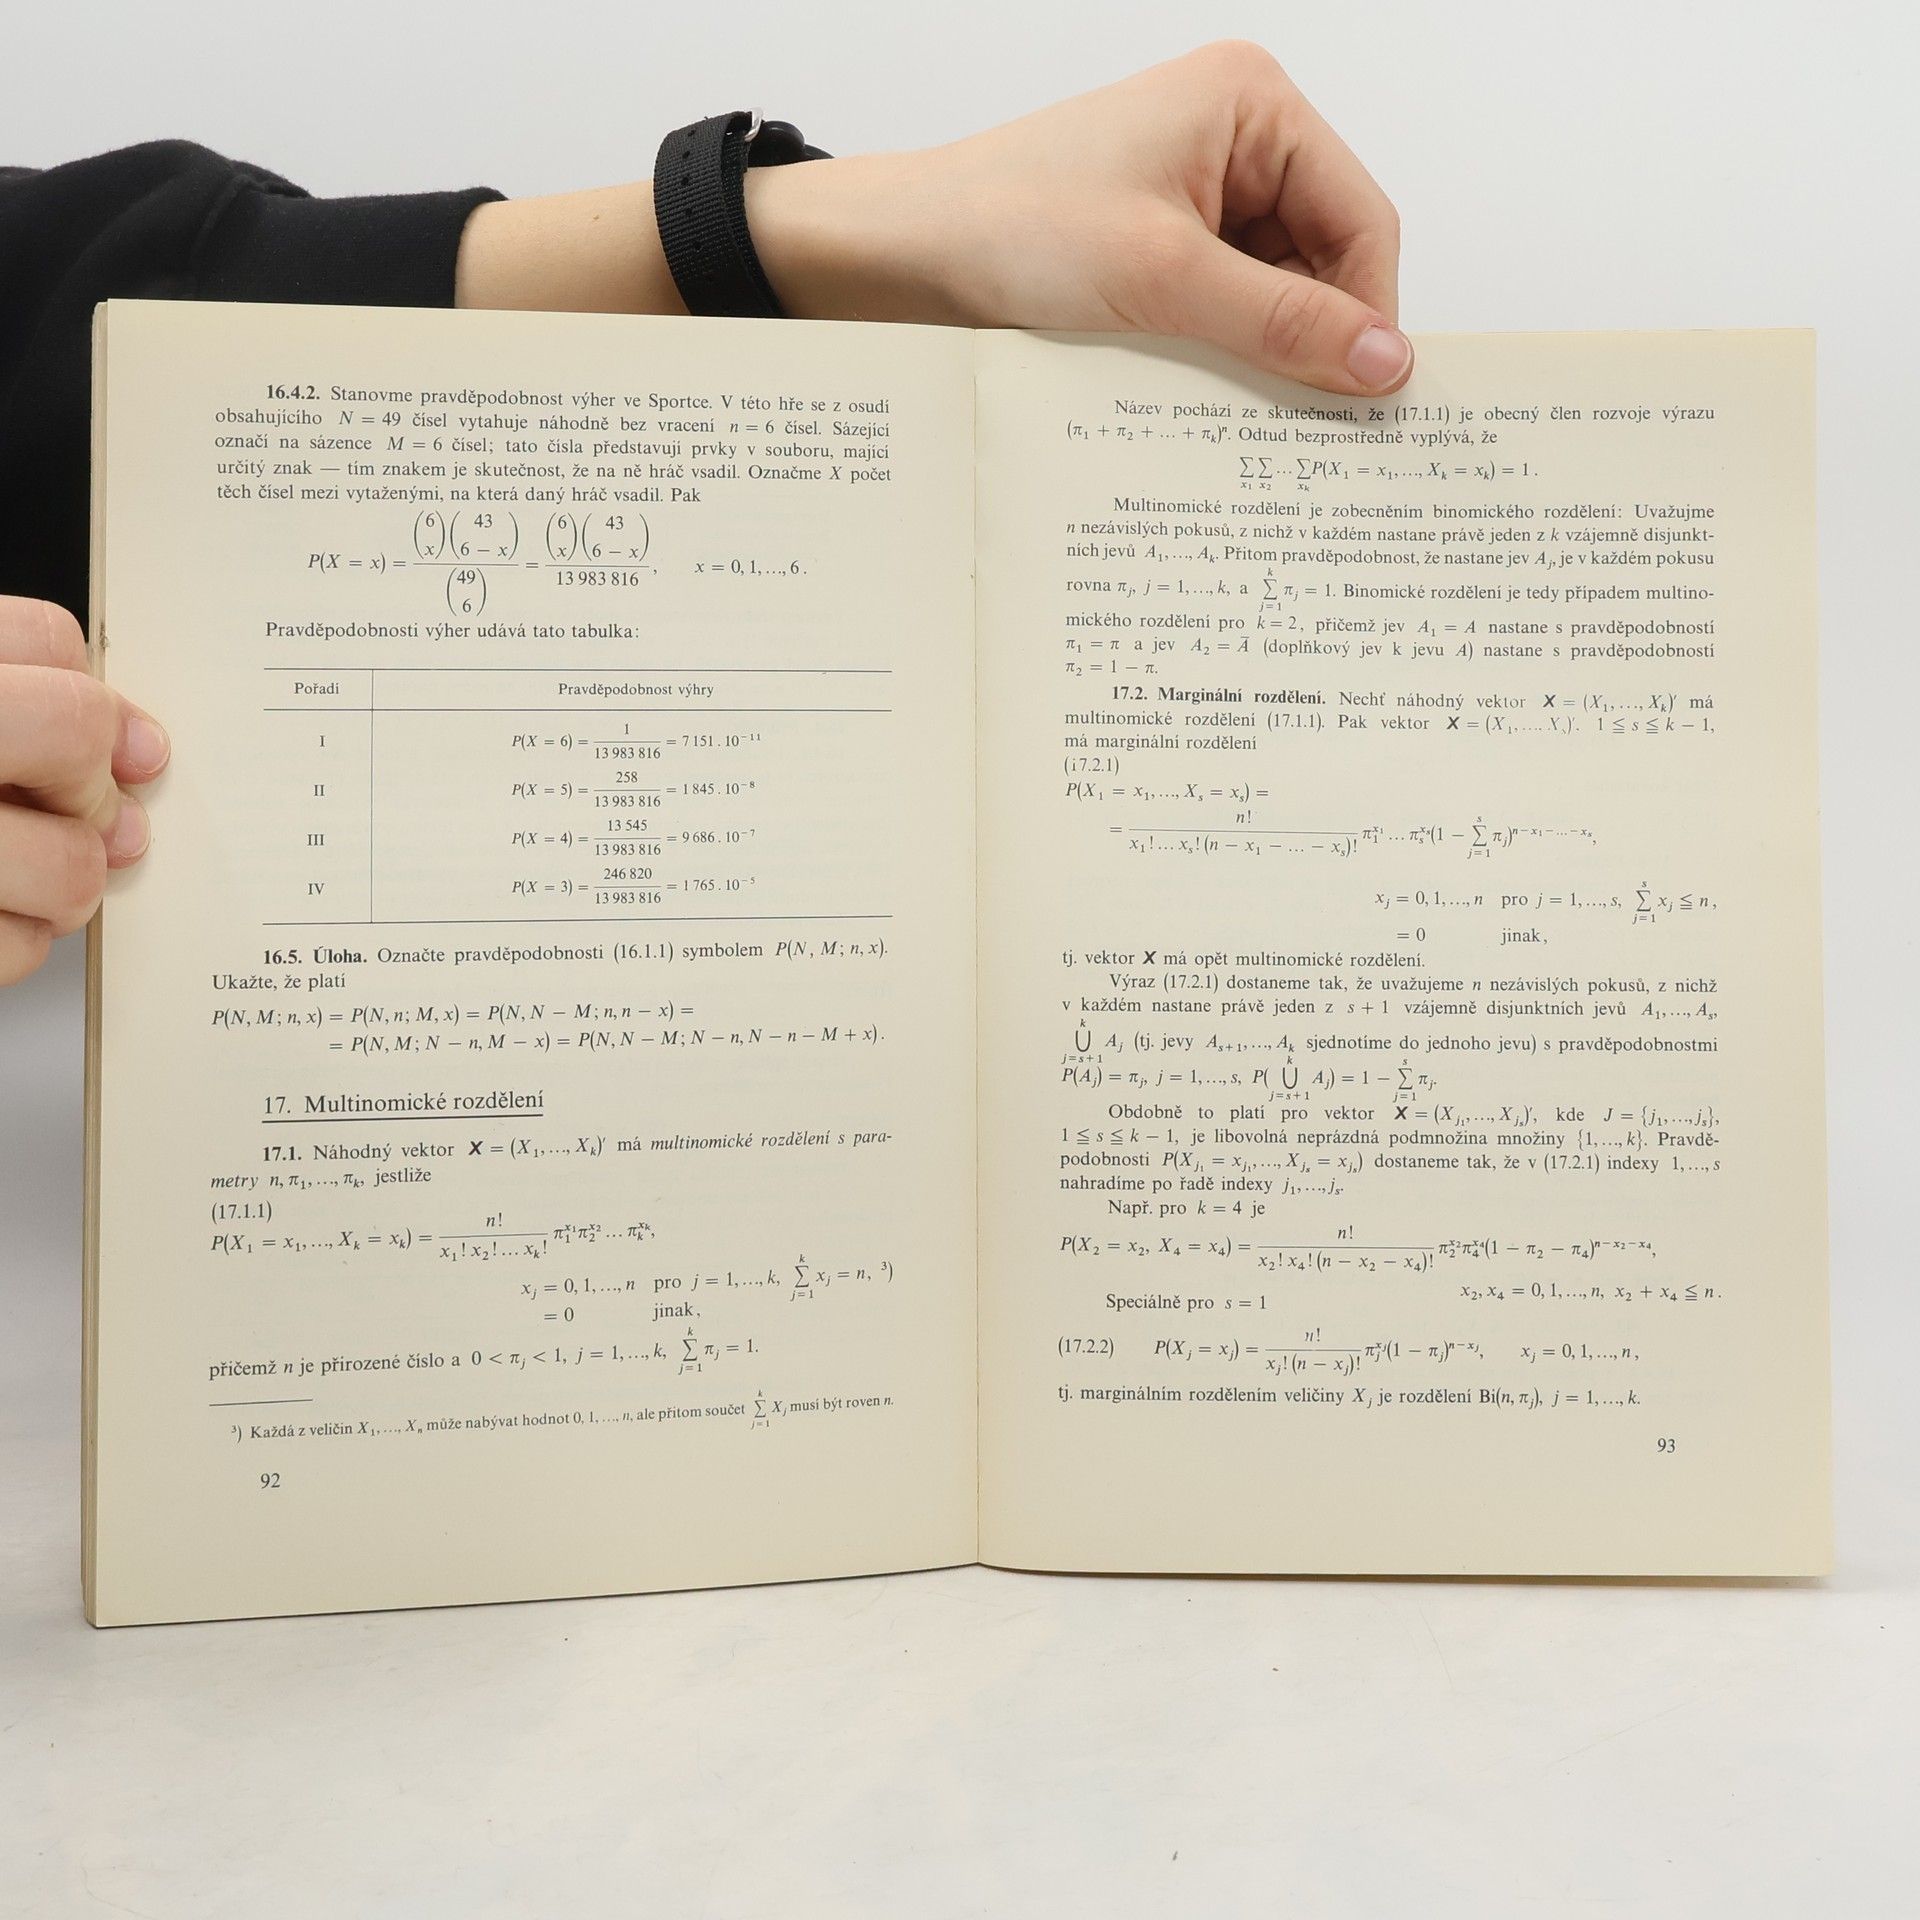 16.4.2. Stanovme pravděpodobnost výher ve Sportce. V této hře se z osudí
obsahujícího N = 49 čísel vytahuje náhodně bez vracení n = 6 čísel. Sázející
označí na sázence M = 6 čísel; tato čísla představují prvky v souboru, mající
určitý znak — tím znakem je skutečnost, že na ně hráč vsadil. Označme X počet
těch čísel mezi vytaženými, na která daný hráč vsadil. Pak
P(X = x) = \frac{\binom{6}{x}\binom{43}{6 - x}}{\binom{49}{6}} = \frac{\binom{6}{x}\binom{43}{6 - x}}{13 983 816}, x = 0, 1, ..., 6.
Pravděpodobnosti výher udává tato tabulka:
Pořadí Pravděpodobnost výhry
I P(X = 6) = \frac{1}{13 983 816} = 7 151 . 10^{-11}
II P(X = 5) = \frac{258}{13 983 816} = 1 845 . 10^{-8}
III P(X = 4) = \frac{13 545}{13 983 816} = 9 686 . 10^{-7}
IV P(X = 3) = \frac{246 820}{13 983 816} = 1 765 . 10^{-5}
16.5. Úloha. Označte pravděpodobnosti (16.1.1) symbolem P(N, M; n, x).
Ukažte, že platí
P(N, M; n, x) = P(N, n; M, x) = P(N, N − M; n, n − x) =
= P(N, M; N − n, M − x) = P(N, N − M; N − n, N − n − M + x).
17. Multinomické rozdělení
17.1. Náhodný vektor X = (X_1, ..., X_k)′ má multinomické rozdělení s para-
metry n, π_1, ..., π_k, jestliže
(17.1.1)
P(X_1 = x_1, ..., X_k = x_k) = \frac{n!}{x_1! x_2! ... x_k!} π_1^{x_1} π_2^{x_2} ... π_k^{x_k},
x_j = 0, 1, ..., n pro j = 1, ..., k, \sum_{j=1}^{k} x_j = n, ³)
= 0 jinak,
přičemž n je přirozené číslo a 0 < π_j < 1, j = 1, ..., k, \sum_{j=1}^{k} π_j = 1.
³) Každá z veličin X_1, ..., X_n může nabývat hodnot 0, 1, ..., n, ale přitom součet \sum_{j=1}^{k} X_j musí být roven n.
92
Název pochází ze skutečnosti, že (17.1.1) je obecný člen rozvoje výrazu
(π_1 + π_2 + ... + π_k)^n. Odtud bezprostředně vyplývá, že
\sum_{x_1} \sum_{x_2} ... \sum_{x_k} P(X_1 = x_1, ..., X_k = x_k) = 1.
Multinomické rozdělení je zobecněním binomického rozdělení: Uvažujme
n nezávislých pokusů, z nichž v každém nastane právě jeden z k vzájemně disjunkt-
ních jevů A_1, ..., A_k. Přitom pravděpodobnost, že nastane jev A_j, je v každém pokusu
rovna π_j, j = 1, ..., k, a \sum_{j=1}^{k} π_j = 1. Binomické rozdělení je tedy případem multino-
mického rozdělení pro k = 2, přičemž jev A_1 = A nastane s pravděpodobností
π_1 = π a jev A_2 = Ā (doplňkový jev k jevu A) nastane s pravděpodobností
π_2 = 1 − π.
17.2. Marginální rozdělení. Nechť náhodný vektor X = (X_1, ..., X_k)′ má
multinomické rozdělení (17.1.1). Pak vektor X = (X_1, ..., X_s)′. 1 ≦ s ≦ k − 1,
má marginální rozdělení
(17.2.1)
P(X_1 = x_1, ..., X_s = x_s) =
= \frac{n!}{x_1! ... x_s! (n − x_1 − ... − x_s)!} π_1^{x_1} ... π_s^{x_s} (1 − \sum_{j=1}^{s} π_j)^{n−x_1−...−x_s},
x_j = 0, 1, ..., n pro j = 1, ..., s, \sum_{j=1}^{s} x_j ≦ n,
= 0 jinak,
tj. vektor X má opět multinomické rozdělení.
Výraz (17.2.1) dostaneme tak, že uvažujeme n nezávislých pokusů, z nichž
v každém nastane právě jeden z s + 1 vzájemně disjunktních jevů A_1, ..., A_s,
\bigcup_{j=s+1}^{k} A_j (tj. jevy A_{s+1}, ..., A_k sjednotíme do jednoho jevu) s pravděpodobnostmi
P(A_j) = π_j, j = 1, ..., s, P(\bigcup_{j=s+1}^{k} A_j) = 1 − \sum_{j=1}^{s} π_j.
Obdobně to platí pro vektor X = (X_{j_1}, ..., X_{j_s})′, kde J = {j_1, ..., j_s},
1 ≦ s ≦ k − 1, je libovolná neprázdná podmnožina množiny {1, ..., k}. Pravdě-
podobnosti P(X_{j_1} = x_{j_1}, ..., X_{j_s} = x_{j_s}) dostaneme tak, že v (17.2.1) indexy 1, ..., s
nahradíme po řadě indexy j_1, ..., j_s.
Např. pro k = 4 je
P(X_2 = x_2, X_4 = x_4) = \frac{n!}{x_2! x_4! (n − x_2 − x_4)!} π_2^{x_2} π_4^{x_4} (1 − π_2 − π_4)^{n−x_2−x_4},
x_2, x_4 = 0, 1, ..., n, x_2 + x_4 ≦ n.
Speciálně pro s = 1
(17.2.2) P(X_j = x_j) = \frac{n!}{x_j! (n − x_j)!} π_j^{x_j} (1 − π_j)^{n−x_j}, x_j = 0, 1, ..., n,
tj. marginálním rozdělením veličiny X_j je rozdělení Bi(n, π_j), j = 1, ..., k.
93